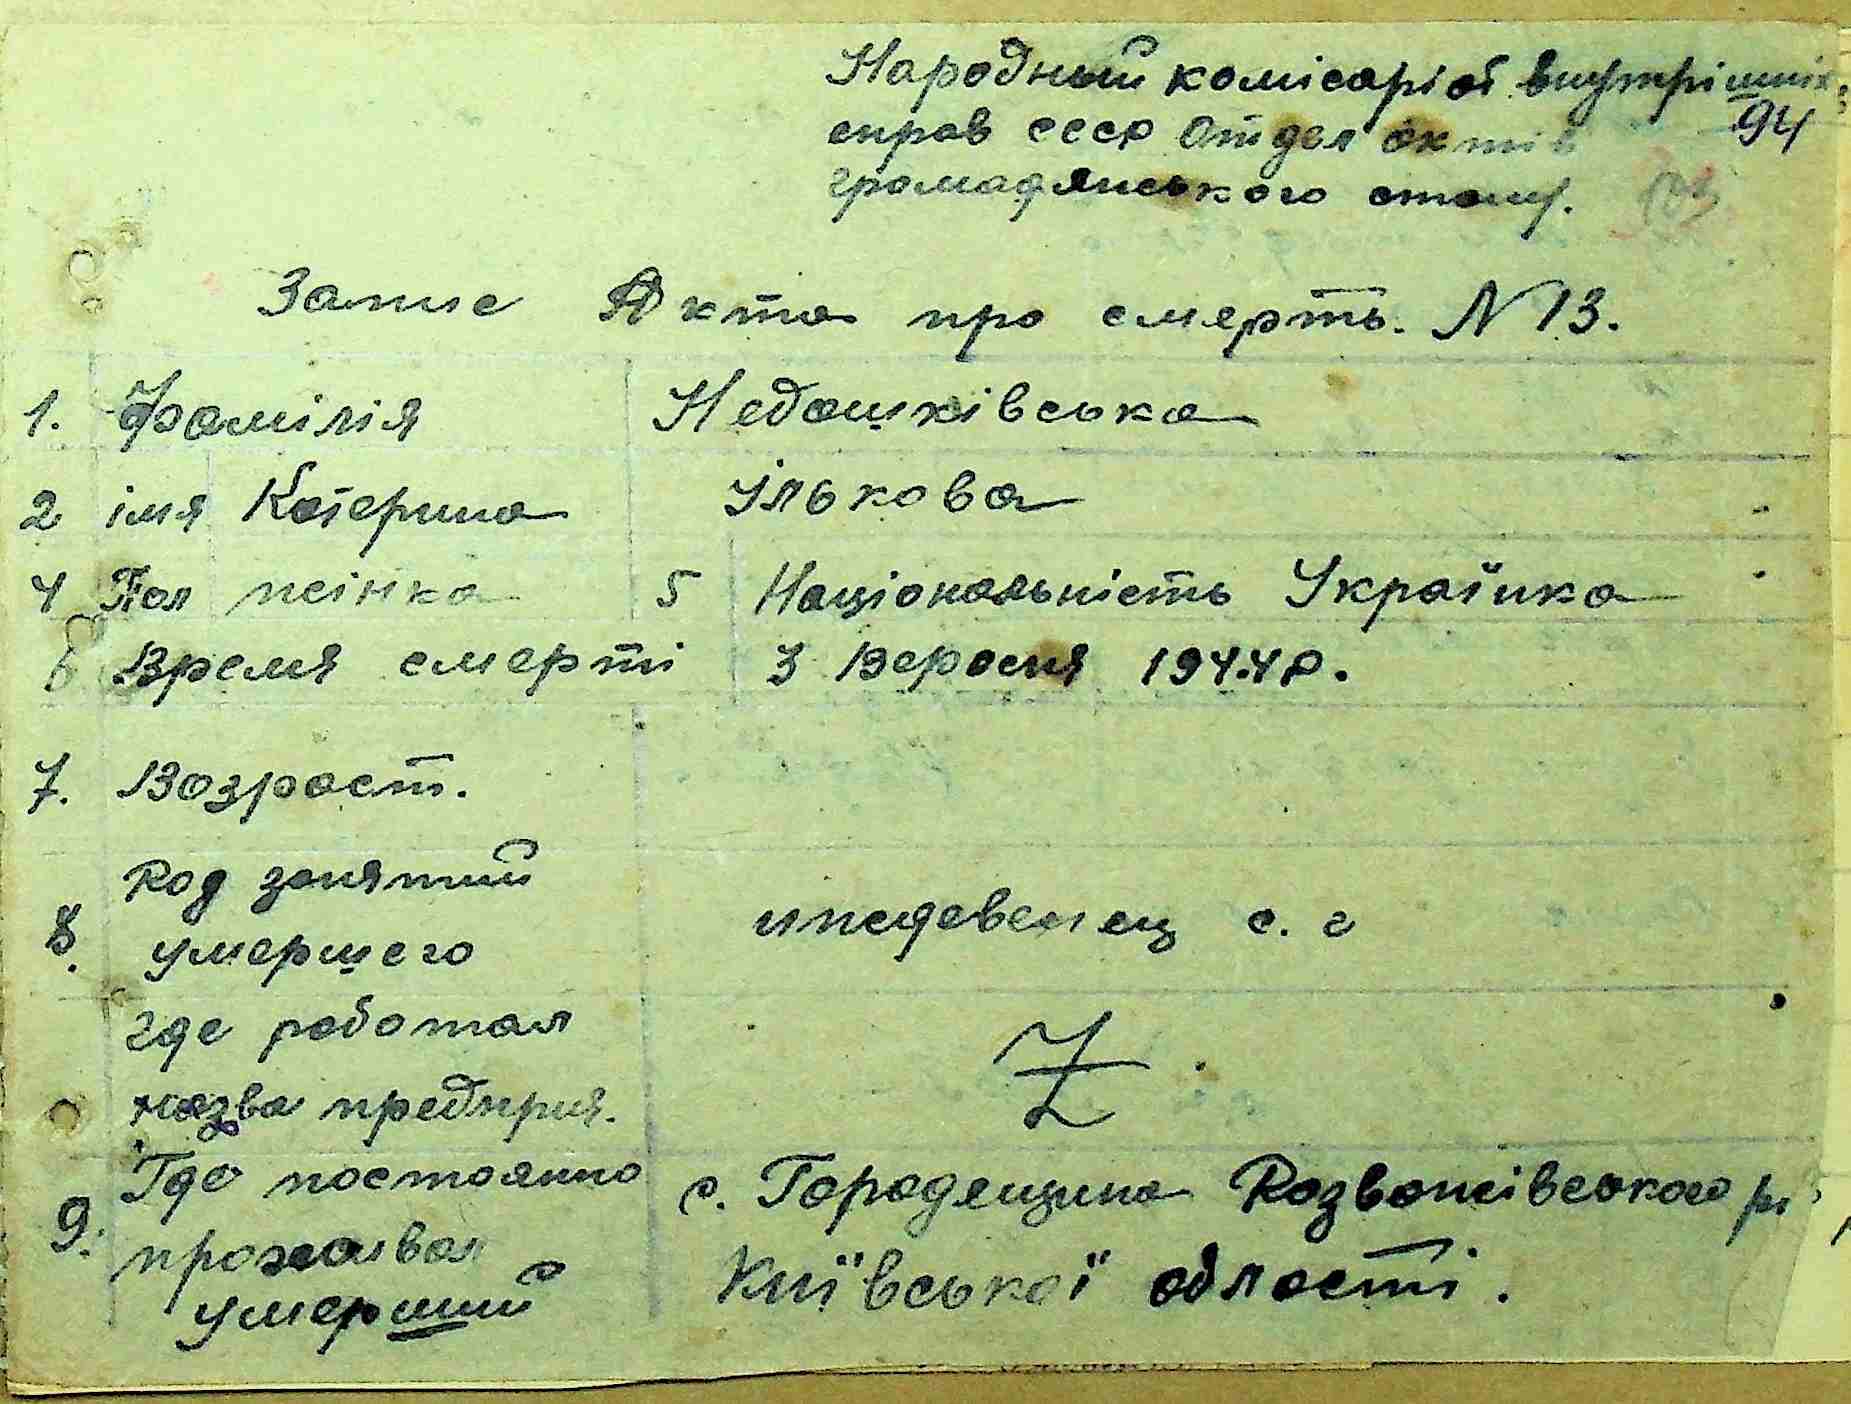 Народный комісаріат внутрішніх
94
справ СССР Отдел актів
громадянського стану.
Запис Акта про смерть. N 13.
1. Фамілія Недашківська
2 імя Катерина Ількова
4 Пол жінка 5 Національність Українка
6 Время смерті 3 Вересня 1944 р.
7. Возраст.
Род занятий
8. умершего иждевенец с. г
где работал
назва предприя.
9. Где постоянно с. Городещина Розважівського р
проживал Київської області.
умерший